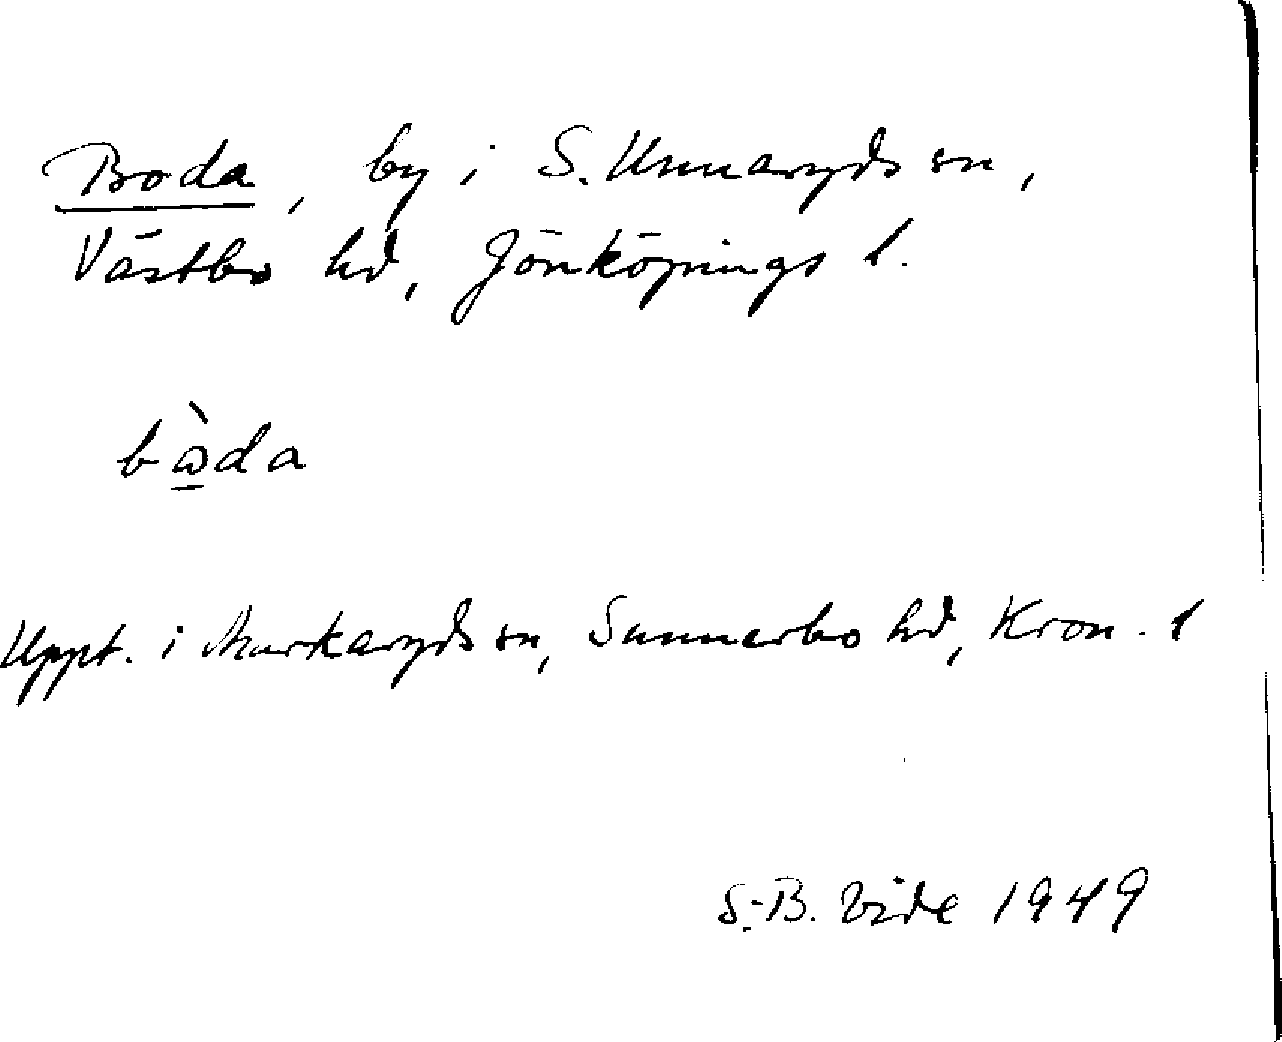 Boda, by i S. Unnaryds sn,
Västbo hd, Jönköpings l.
bɷ̀da
Uppt. i Markaryds sn, Sunnerbo hd, Kron. l
S.-B. Vide 1949